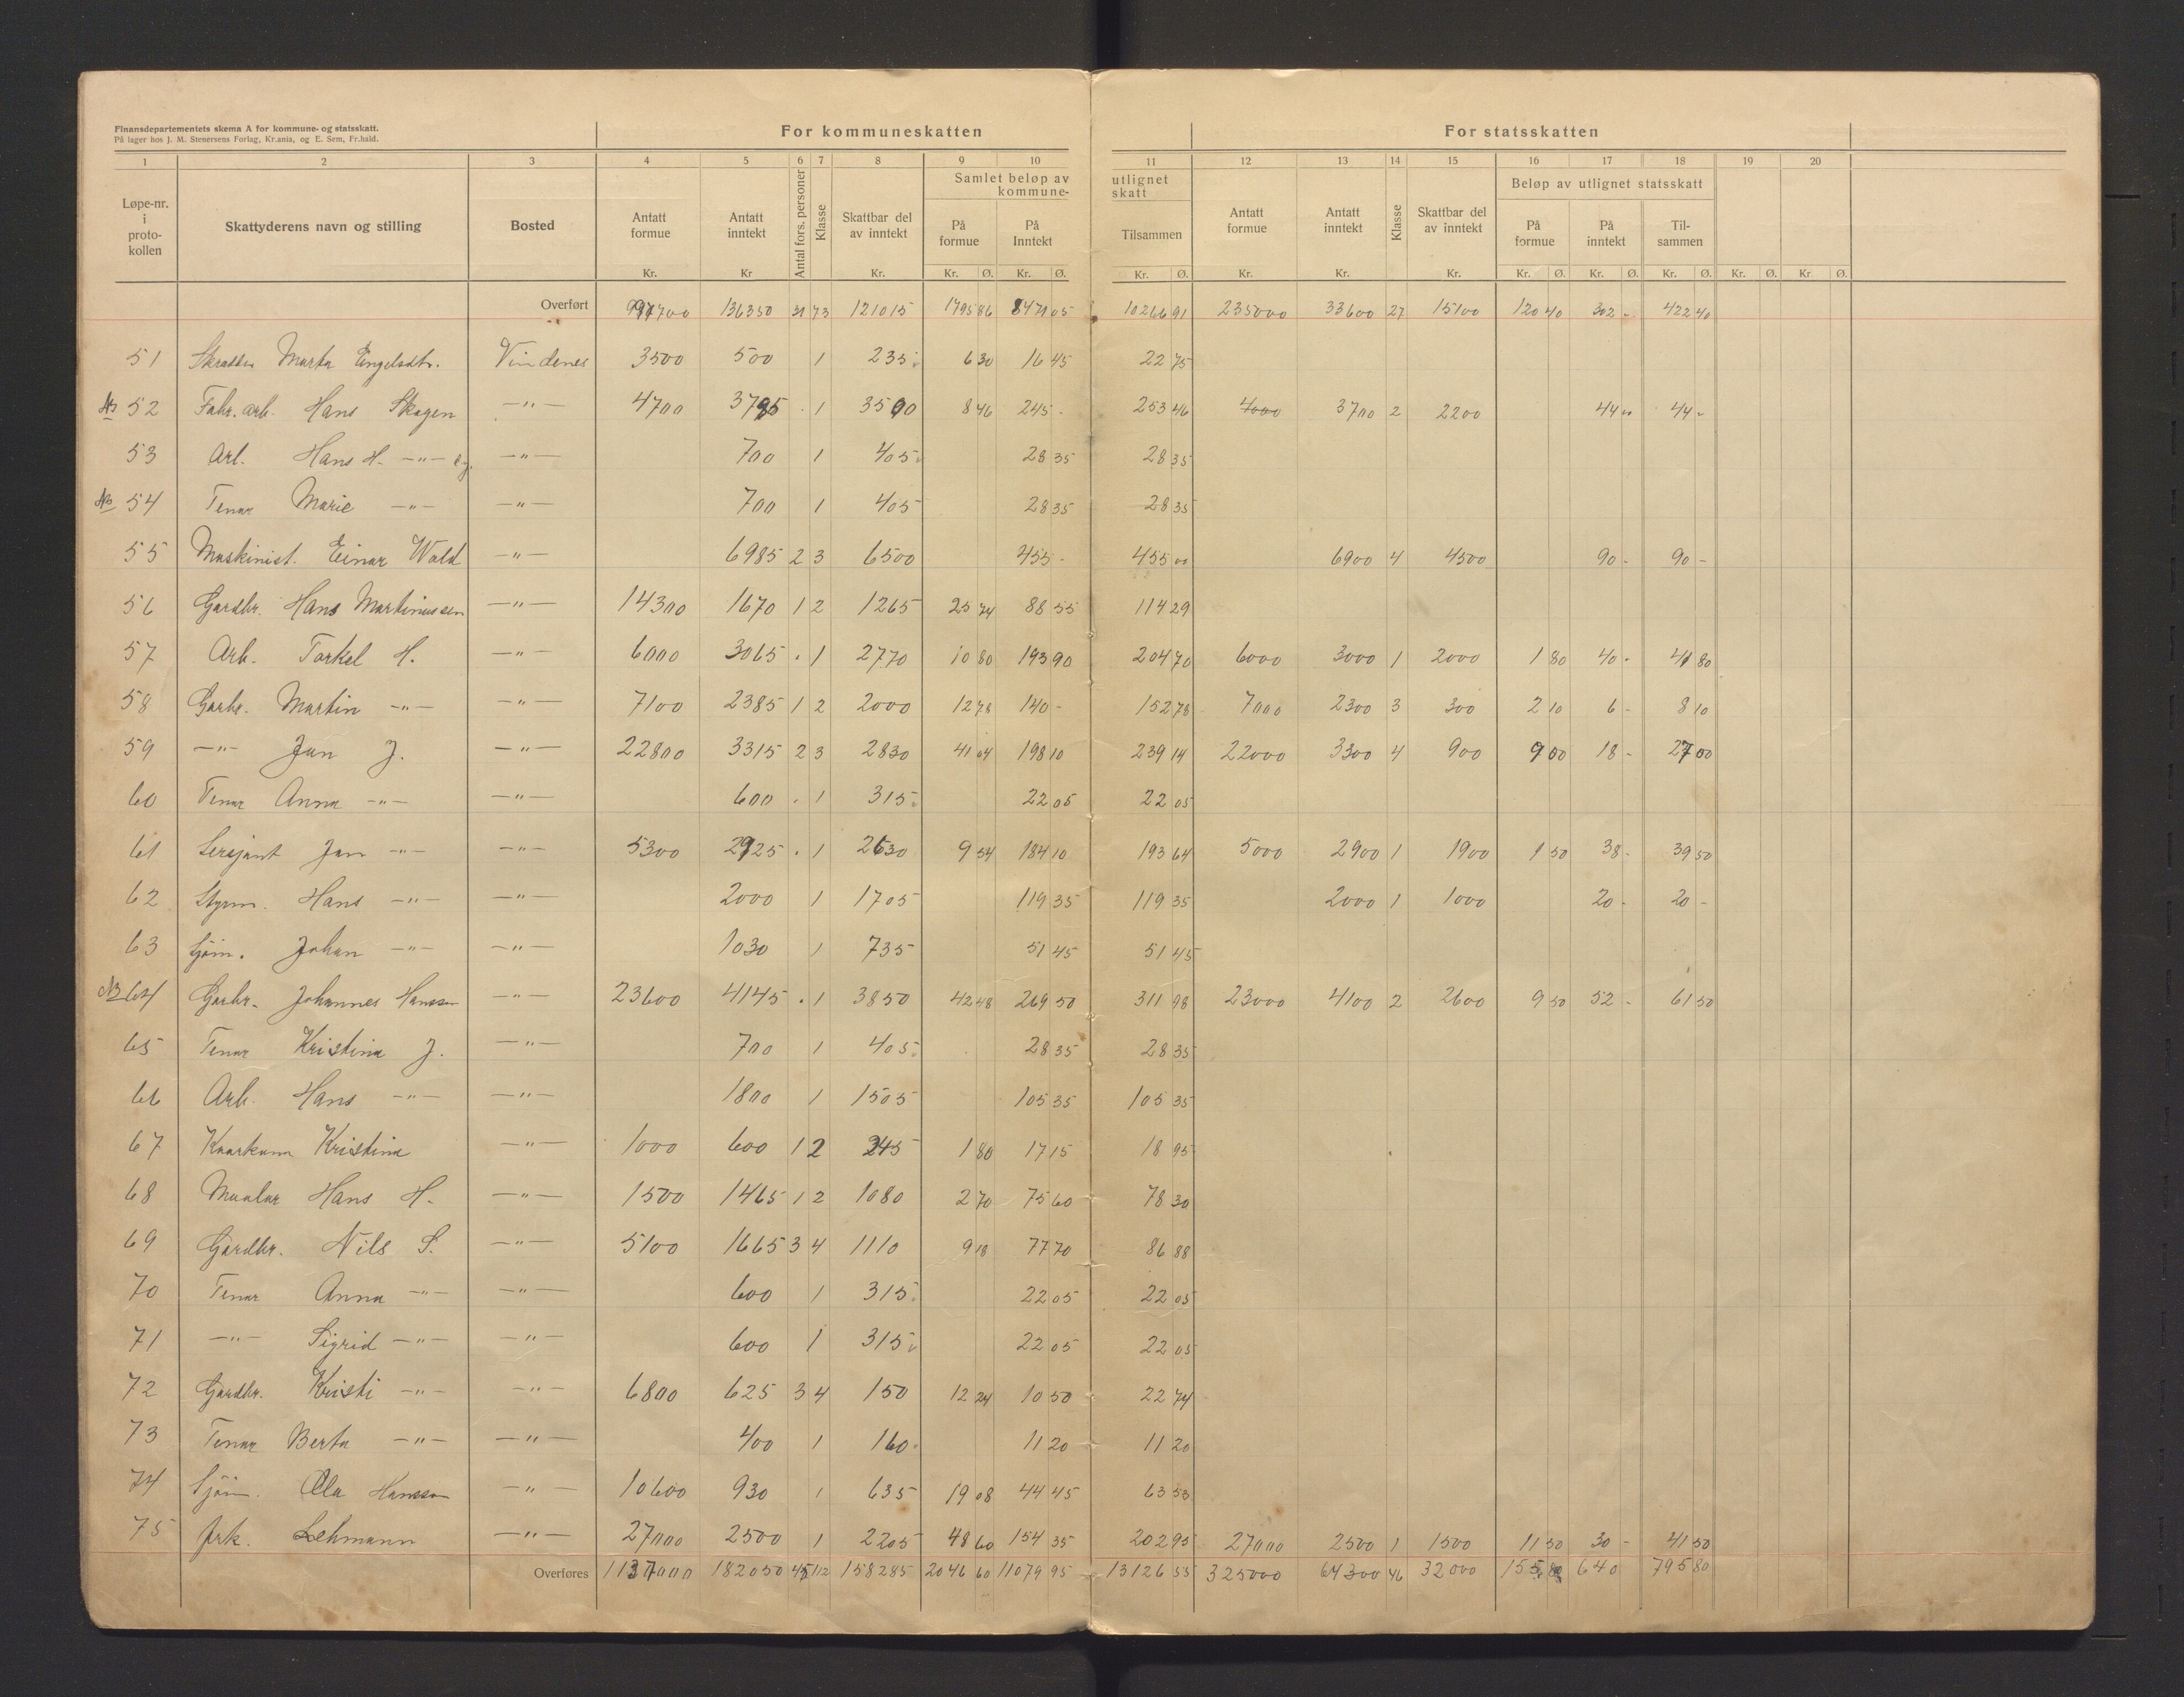 Finansdepartementets skema A for kommune- og statsskatt.
På lager hos J. M. Stenersens Forlag, Kr.ania, og E. Sem, Fr.hald.
For kommuneskatten For statsskatten
1 2 3 4 5 6 7 8 9 10 11 12 13 14 15 16 17 18 19 20
Løpe-nr. i proto-kollen Skattyderens navn og stilling Bosted Antatt formue Antatt inntekt Antal fors. personer Klasse Skattbar del av inntekt Samlet beløp av kommune- utlignet skatt På formue På Inntekt Tilsammen Antatt formue Antatt inntekt Klasse Skattbar del av inntekt Beløp av utlignet statsskatt På formue På inntekt Til-sammen
Kr. Kr Kr. Kr. Ø. Kr. Ø. Kr. Ø. Kr. Kr. Kr. Kr. Ø. Kr. Ø. Kr. Ø. Kr. Ø. Kr Ø.
Overført 136350 31 73 121015 1795 86 8471 05 10266 91 235000 33600 27 15100 120 40 302 - 422 40
51 Marta Engelsdtr. Vindenes 3500 500 1 235 6 30 16 45 22 75
52 Fabr. arb. Hans Skagen -"- 4700 3795 . 1 3500 8 46 245 - 253 46 4000 3700 2 2200 44 - 44 -
53 Arb. Hans H. -"- -"- 700 1 405 28 35 28 35
54 Tenar Marie -"- -"- 700 1 405 28 35 28 35
55 Maskinist. Einar Wold -"- 6985 2 3 6500 455 - 455 00 6900 4 4500 90 - 90 -
56 Gardbr. Hans Martinussen -"- 14300 1670 1 2 1265 25 74 88 55 114 29
57 Arb. Torkel H. -"- 6000 3065 . 1 2770 10 80 193 90 204 70 6000 3000 1 2000 1 80 40 - 41 80
58 Garbr. Martin -"- -"- 7100 2385 1 2 2000 12 78 140 - 152 78 7000 2300 3 300 2 10 6 - 8 10
59 -"- Jan J. -"- 22800 3315 2 3 2830 41 04 198 10 239 14 22000 3300 4 900 9 00 18 - 27 00
60 Tenar Anna -"- -"- 600 . 1 315 22 05 22 05
61 Sersjant Jan -"- -"- 5300 2925 . 1 2630 9 54 184 10 193 64 5000 2900 1 1900 1 50 38 - 39 50
62 Styrm. Hans -"- -"- 2000 1 1705 119 35 119 35 2000 1 1000 20 - 20 -
63 Sjøm. Johan -"- -"- 1030 1 735 51 45 51 45
64 Garbr. Johannes Hansson -"- 23600 4145 . 1 3850 42 48 269 50 311 98 23000 4100 2 2600 9 50 52 - 61 50
65 Tenar Kristina J. -"- 700 1 405 28 35 28 35
66 Arb. Hans -"- -"- 1800 1 1505 105 35 105 35
67 Kristina -"- 1000 600 1 2 245 1 80 17 15 18 95
68 Maalar Hans H. -"- 1500 1465 1 2 1080 2 70 75 60 78 30
69 Gardbr. Nils S. -"- 5100 1665 3 4 1110 9 18 77 70 86 88
70 Tenar Anna -"- -"- 600 1 315 22 05 22 05
71 -"- Sigrid -"- -"- 600 1 315 22 05 22 05
72 Gardbr. Kristi -"- -"- 6800 625 3 4 150 12 24 10 50 22 74
73 Tenar Berta -"- -"- 400 1 160 11 20 11 20
74 Sjøm. Ola Hansson -"- 10600 930 1 635 19 08 44 45 63 53
75 Frk. Lehmann -"- 27000 2500 1 2205 48 60 154 35 202 95 27000 2500 1 1500 11 50 30 - 41 50
Overføres 1137000 182050 45 112 158285 2046 60 11079 95 13126 55 325000 64300 46 32000 155 80 640 795 80